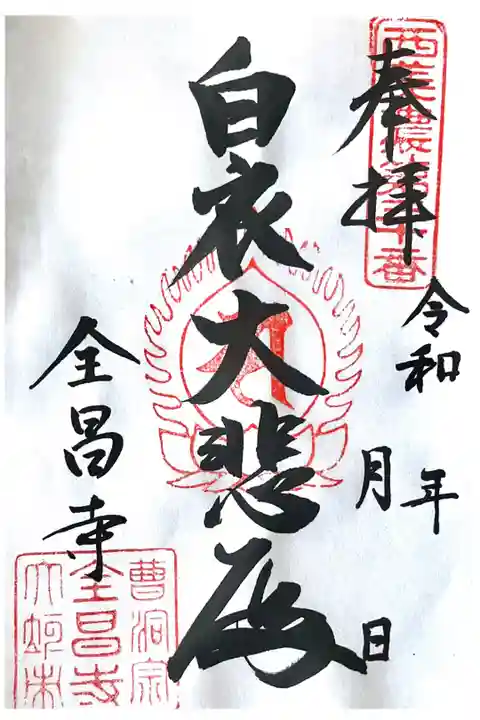 奉拝
西美濃第十番
令和 年
月 日
白衣大悲殿
全昌寺
曹洞宗
全昌寺